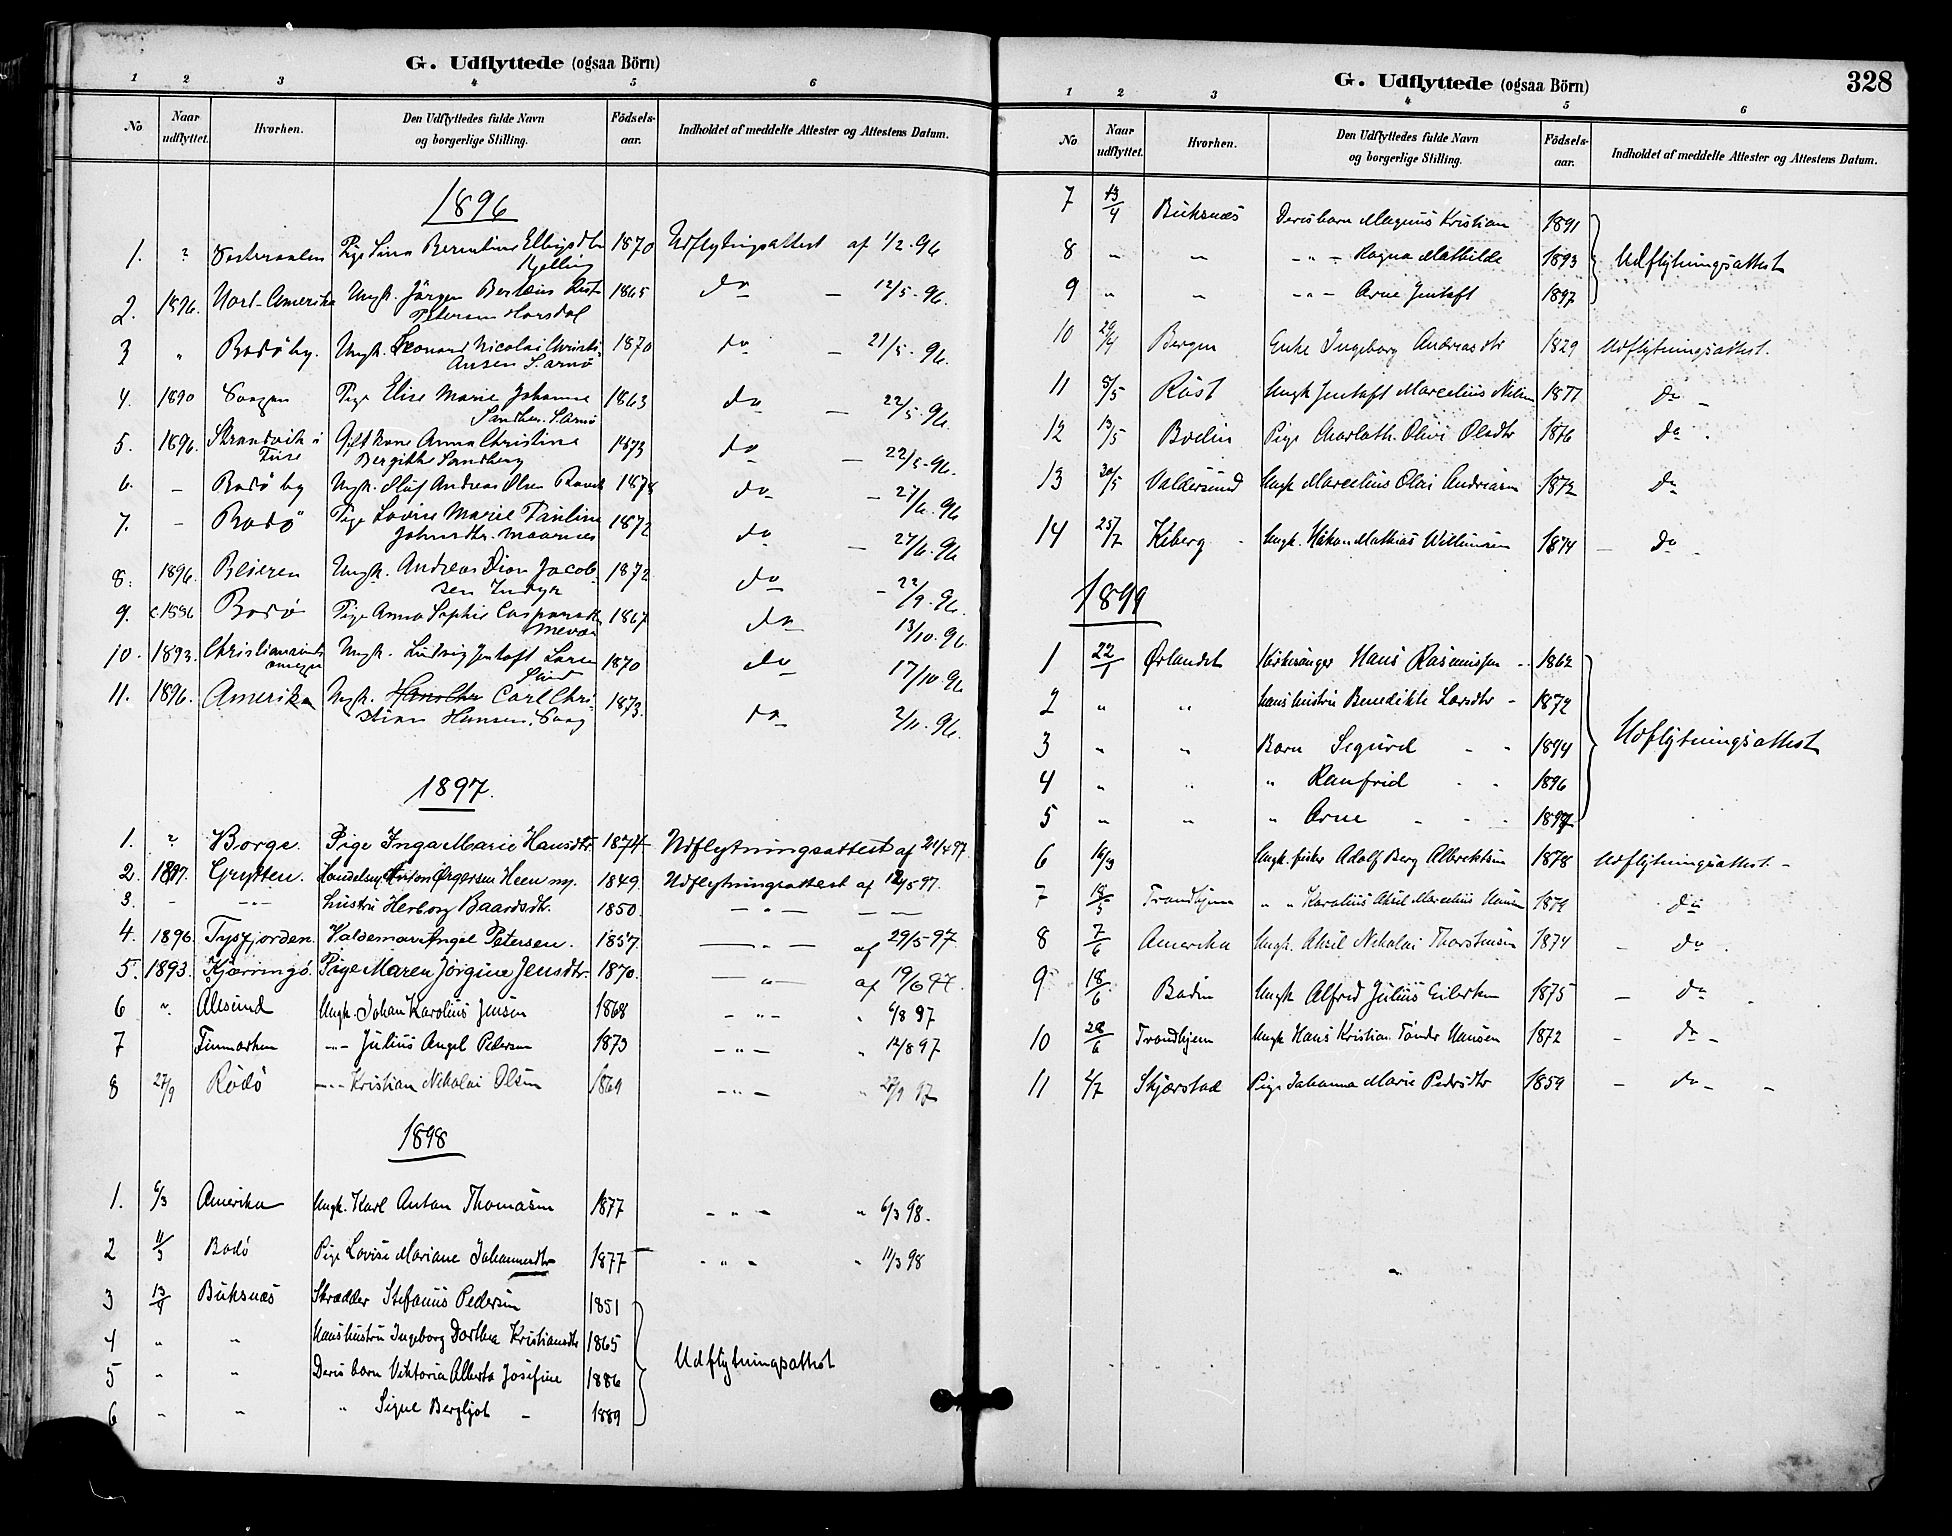 G. Udflyttede (ogsaa Börn)
1 2 3 4 5 6
No Naar udflyttet. Hvorhen. Den Udflyttedes fulde Navn og borgerlige Stilling. Födsels-aar. Indholdet af meddelte Attester og Attestens Datum.
1896
1. " Vesteraalen Pige Sina Berentine Ellingsdtr 1870 Udflytningsattest af 1/2-96
Kjelling
2. 1896. Nord-Amerika Ungk. Jörgen Bertëus 1865 do — 12/5-96.
Petersen Horsdal
3 " Bodöby. Ungk. Leonard Nicolai Christi- 1870 do — 21/5-96.
ansen
4. 1890 Ungk. Pige Elise Marie Johanna 1863 do — 22/5-96.
5. 1896. Strandvik i Gift kone Anna Christine 1873 do — 22/5-96.
Fuse Bergitte Sandberg
6. — Bodö by Ungk. Oluf Andreas Olsen 1878 do — 27/6-96
7. — Bodö Pige Lovise Marie Pauline 1872 do — 27/6-96
Johnsdtr. Maarnes
8. 1896. Beieren Ungk. Andreas Dion Jacob- 1872 do — 22/9-96.
sen Indyr
9. c.1896 Bodö Pige Anna Sophie 1867 do 13/10-96
10. 1893. Christiansunds Ungk. Ludvig Jentoft 1870 do 17/10-96
11. 1896. Amerika Ungk. Carl Chri- 1873. do 2/11-96.
stian Hansen,
1897.
1. " Borge. Pige Inga Marie Hansdtr. 1874 Udflytningsattest af 21/4 97.
2. 1897. Grytten. Handelsmd. Anton Ørgersen Heen 1849. Udflytningsattest af 12/5 97.
3. — — " — hustru Herborg Baardsdtr. 1850. — " — — —
4. 1896. Tysfjorden. Valdemar Angel Petersen. 1857. — " — af 29/5-97.
5. 1893. Kjerringö. Pige Maren Jörgine Jensdtr. 1870. — " — af 19/6 97.
6 " Alesund Ungk. Johan Karolius Jensen 1868 — " — " 6/8 97
7 Finmarken — " — Julius Angel Pedersen 1873 — " — " 14/8 97
8 27/9 Rödö — " — Kristian Nikolai Olsen 1869 — " — " 27/9 97
1898
1. 6/3 Amerika Ungk. Karl Anton Thomasen 1877 — " — " 6/3 98.
2 11/3 Bodö Pige Lovise Mariane Johannesdtr 1877 — " — " 11/3 98
3 13/4 Buksnæs Skrædder Stefanus Pedersen 1851
4 " " Hans hustru Ingeborg Dorthea Kristiansdtr 1865
Udflytningsattest
5 " " Deres barn Viktoria Alberta Josefine 1886
6 " " " Signe Bergljot — 1889
G. Udflyttede (ogsaa Börn) 328
1 2 3 4 5 6
No Naar udflyttet. Hvorhen. Den Udflyttedes fulde Navn og borgerlige Stilling. Födsels-aar. Indholdet af meddelte Attester og Attestens Datum.
7 13/4 Buksnæs Deres barn Magnus Kristian 1891
8 " " — " — Ragna Mathilde 1893 Udflytningsattest
9 " " — " — Arne Jentoft 1897
10 29/4 Bergen Enke Ingeborg Andreasdtr 1829 Udflytningsattest.
11 5/5 Röst Ungk Jentoft Marcelius Nilsen 1877 do —
12 13/5 Bodin Pige Olsdtr 1876 do
13 20/5 Valdersund Ungk Marcelius Olai Andreasen 1872 do
14 25/7 Kiberg Ungk. Håkon Mathias Willumsen 1874 — do —
1899
1 22/1 Ørlandet Kirkesanger Hans Rasmussen 1862
2 " " Hans hustru Benedikte Larsdtr 1872
3 " " Barn Sigurd " " 1894 Udflytningsattest
4 " " " Ranfrid " " 1896
5 " " " Arne " " 1897
6 16/3 Ungk. fisker Adolf Berg Albrektsen 1878 Udflytningsattest —
7 18/5 Trondhjem " " Karolius Aksel Marcelius Hansen 1879 do
8 7/6 Amerika Ungk. Aksel Nikolai Thorstensen 1874 — do
9 18/6 Bodin Ungk Alfred Julius Eilertsen 1875 — do
10 28/6 Trondhjem Ungk Hans Kristian Tönder Hansen 1872 — do —
11 2/7 Skjerstad Pige Johanna Marie Pedersdtr 1859 — do — —